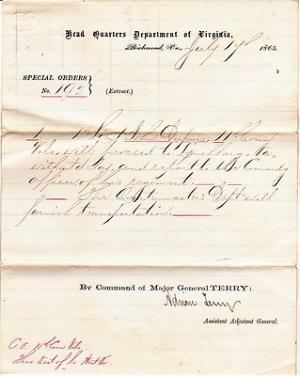 Head Quarters Department of Virginia,
Richmond, Va., July 19th 1865.
SPECIAL ORDERS
No. 192
(Extract.)
Vols, will proceed to Lynchburg, Va,
without delay, and report to the Commdg
officer of his regiment.
The Quartermasters Dept will
furnish transportation.
By Command of Major General TERRY:
Adrian Terry
Assistant Adjutant General.
C.O. 11th Conn Vols